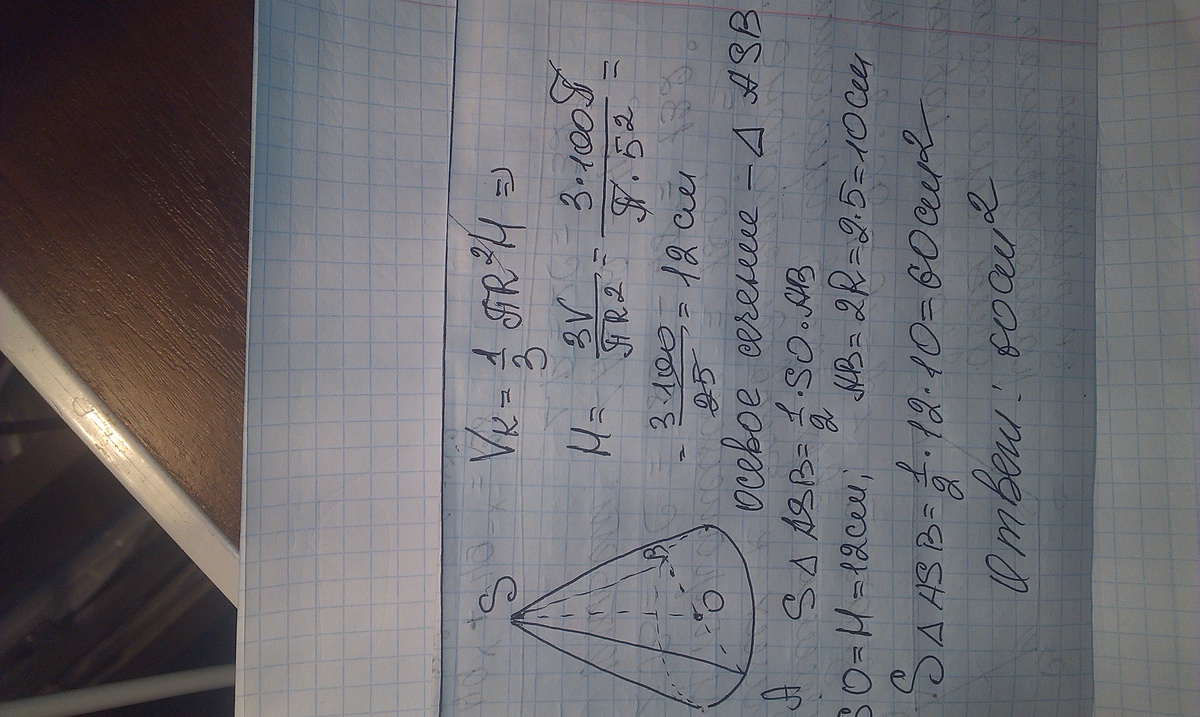 S
A
B
O
Vк = 1/3 πR²H ⇒
H = 3V/πR2 = 3·100π/π·5² =
= 3·100/25 = 12 см
осевое сечение – Δ ASB
SΔ ASB = 1/2 · SO · AB
SO = H = 12см; AB = 2R = 2·5 = 10см
SΔ ASB = 1/2 · 12 · 10 = 60см2
Ответ: 60см2